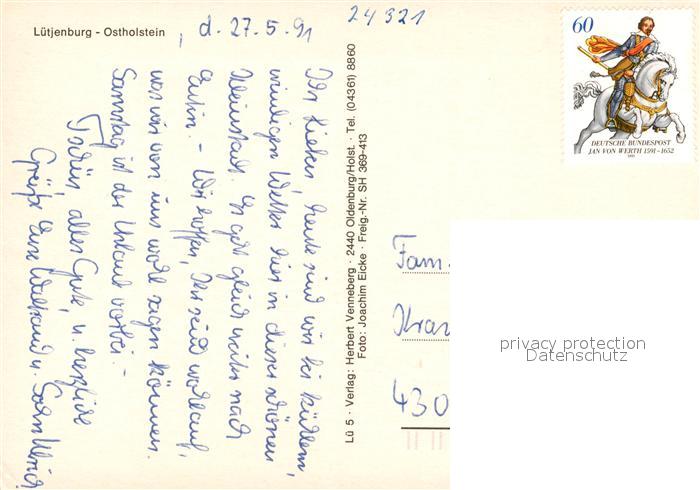 Lütjenburg - Ostholstein
, d. 27.5.91
24321
Ihr Lieben, heute sind wir bei kühlem,
windigen Wetter hier in dieser schönen
Kleinstadt. Es geht gleich weiter nach
Eutin. - Wir hoffen, Ihr seid wohlauf,
was wir von uns wohl sagen können.
Samstag ist der Urlaub vorbei. -
Tschüß, alles Gute, u. herzliche
Grüße Eure Waltraud u. Sohn Ulrich
Lü 5 · Verlag: Herbert Venneberg · 2440 Oldenburg/Holst. · Tel. (04361) 8860
Foto: Joachim Eicke · Freig.-Nr. SH 369-413
60
DEUTSCHE BUNDESPOST
JAN VON WERTH 1591-1652
1991
Fam.
430
privacy protection
Datenschutz